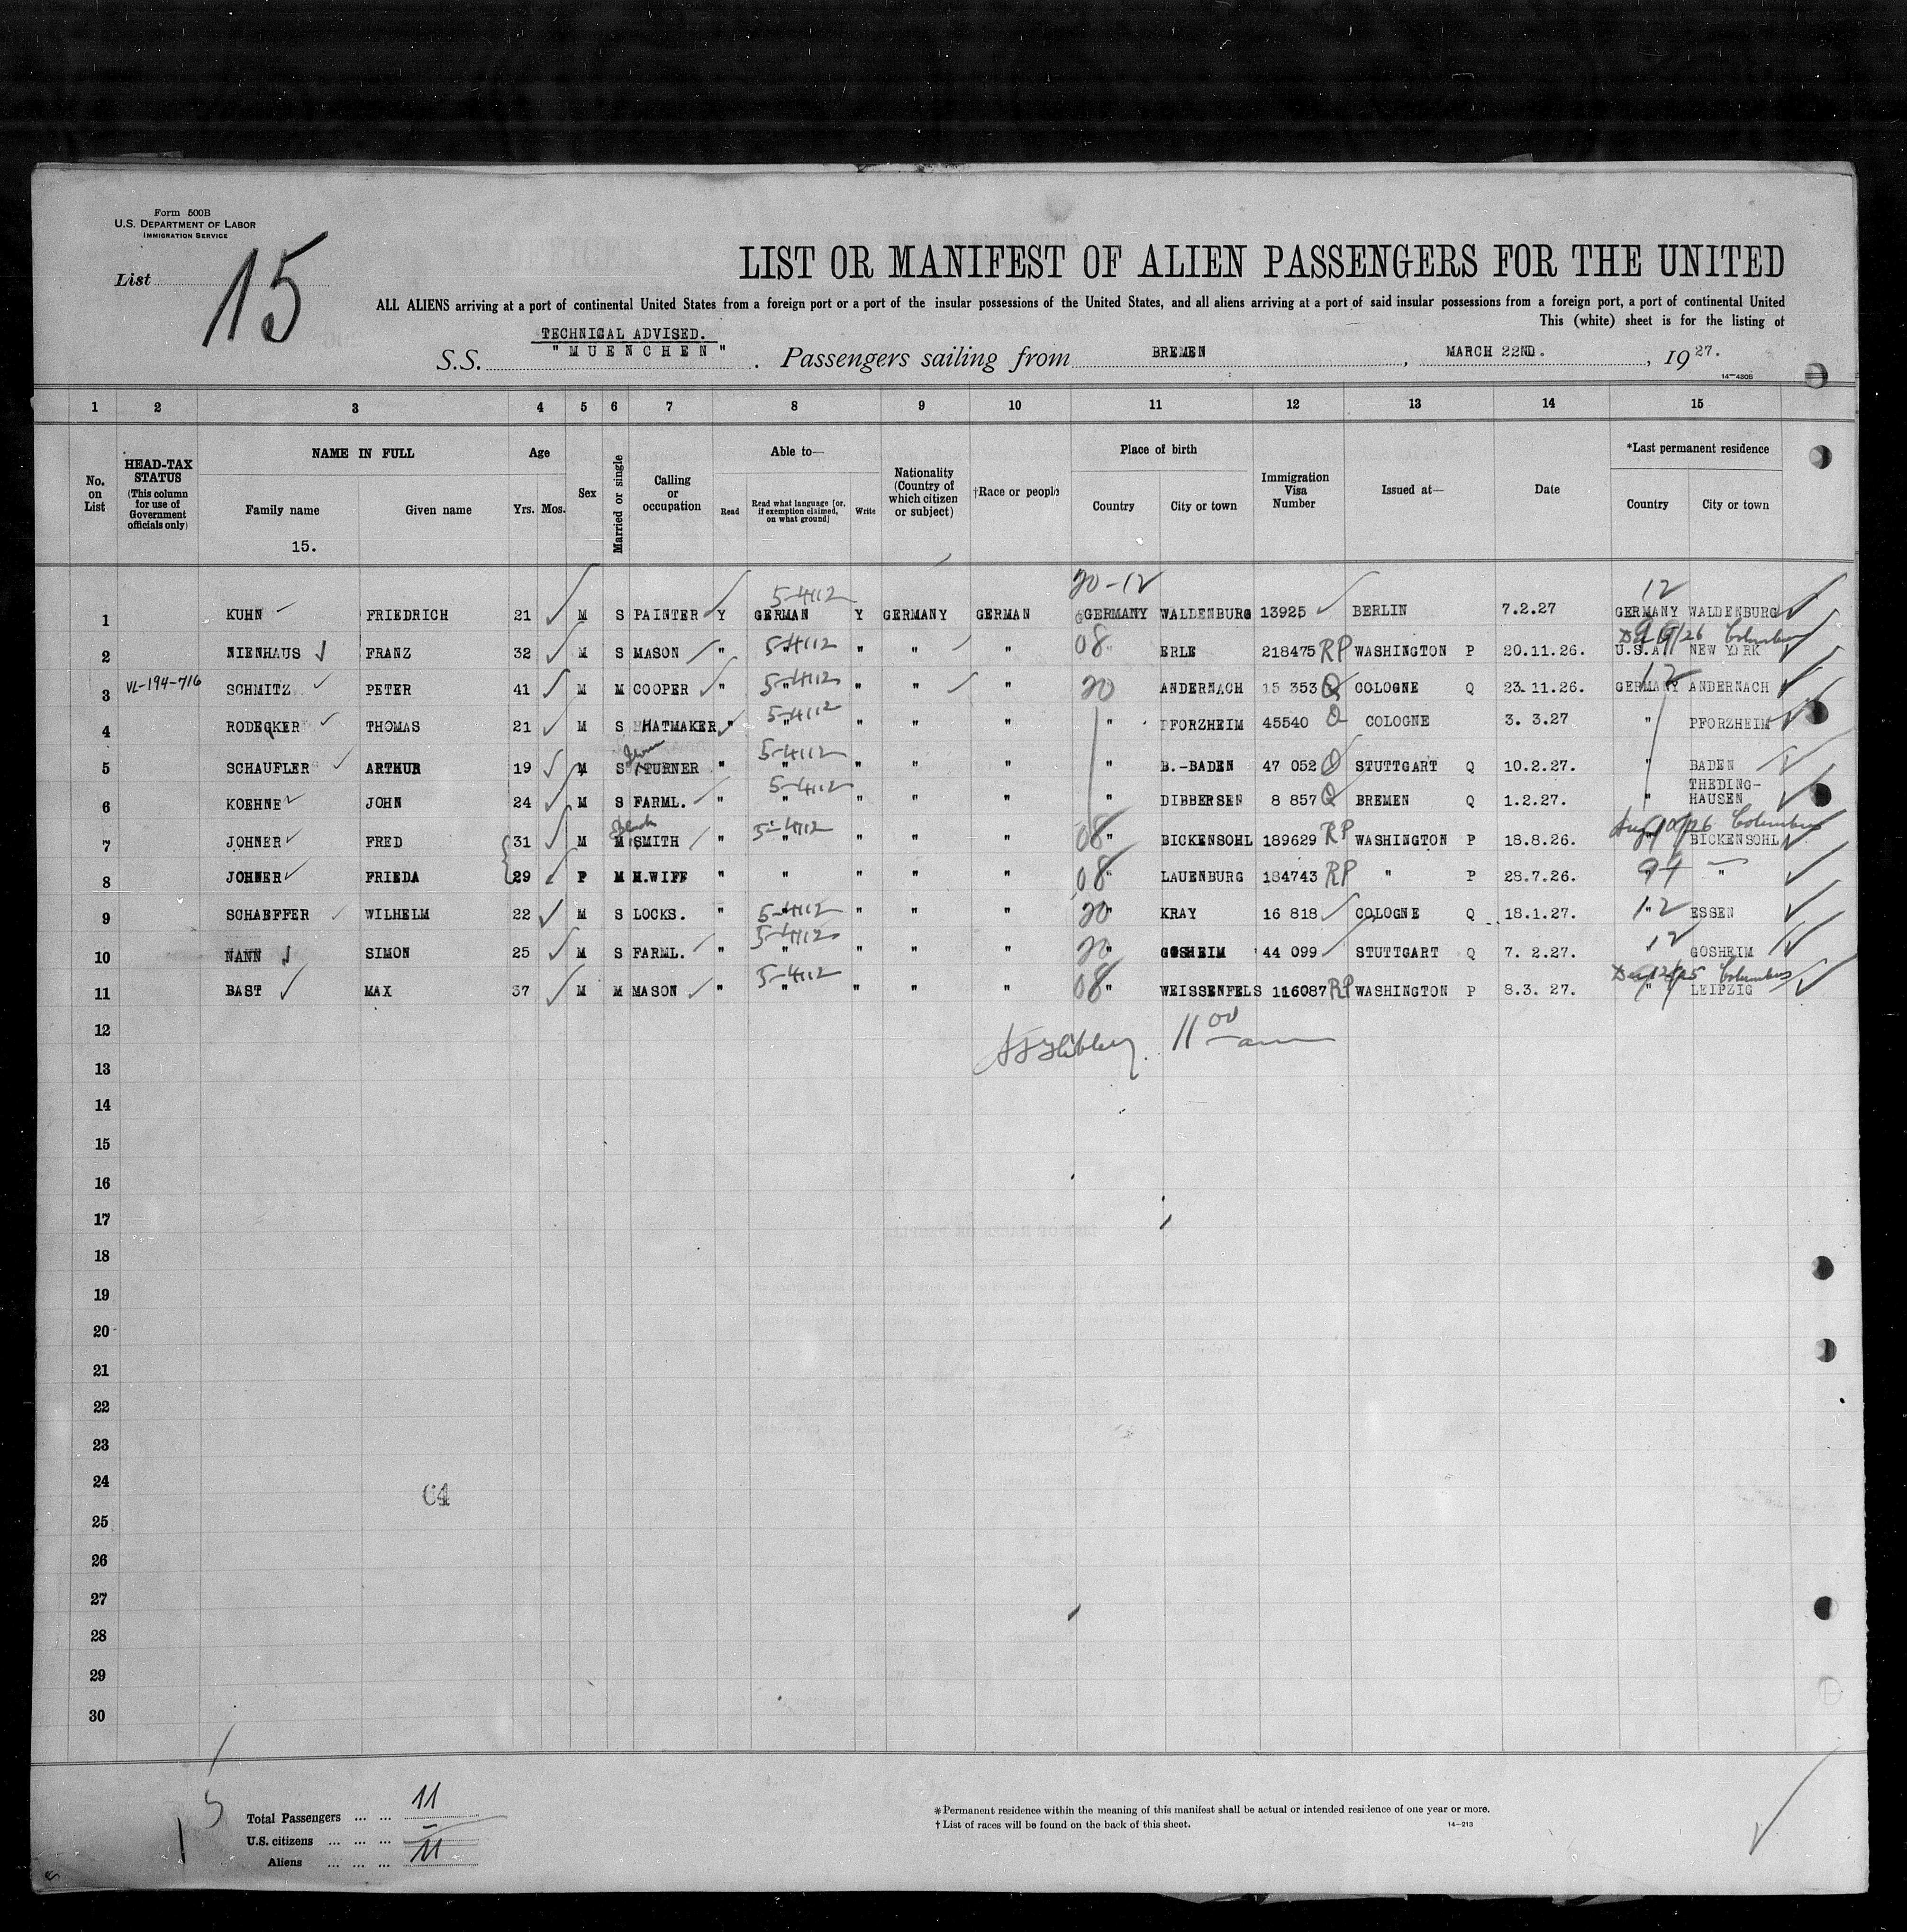 Form 500B
U.S. DEPARTMENT OF LABOR
IMMIGRATION SERVICE
List 15
LIST OR MANIFEST OF ALIEN PASSENGERS FOR THE UNITED
ALL ALIENS arriving at a port of continental United States from a foreign port or a port of the insular possessions of the United States, and all aliens arriving at a port of said insular possessions from a foreign port, a port of continental United
This (white) sheet is for the listing of
TECHNICAL ADVISED.
S.S. "MUENCHEN". Passengers sailing from BREMEN, MARCH 22ND., 19 27.
14—430B
1 2 3 4 5 6 7 8 9 10 11 12 13 14 15
No. on List
HEAD-TAX STATUS (This column for use of Government officials only)
NAME IN FULL
Family name
Given name
15.
Age
Yrs. Mos.
Sex
Married or single
Calling or occupation
Able to—
Read
Read what language [or, if exemption claimed, on what ground]
Write
Nationality (Country of which citizen or subject)
†Race or people
Place of birth
Country
City or town
Immigration Visa Number
Issued at—
Date
*Last permanent residence
Country
City or town
20-12 12
5-4112
1 KUHN FRIEDRICH 21 M S PAINTER Y GERMAN Y GERMANY GERMAN GERMANY WALDENBURG 13925 BERLIN 7.2.27 GERMANY WALDENBURG
2 NIENHAUS FRANZ 32 M S MASON " 5-4112 " " " " 08 " ERLE 218475 RP WASHINGTON P 20.11.26. U.S.A. NEW YORK
3 VL-194-716 SCHMITZ PETER 41 M M COOPER " 5-4112 " " " " 20 ANDERNACH 15 353 Q COLOGNE Q 23.11.26. 12 GERMANY ANDERNACH
4 RODECKER THOMAS 21 M S HATMAKER " 5-4112 " " " " " PFORZHEIM 45540 Q COLOGNE 3. 3.27 " PFORZHEIM
5 SCHAUFLER ARTHUR 19 M S TURNER " 5-4112 " " " " " B.-BADEN 47 052 Q STUTTGART Q 10.2.27. " BADEN
6 KOEHNE JOHN 24 M S FARML. " 5-4112 " " " " " DIBBERSEN 8 857 Q BREMEN Q 1.2.27. " THEDING-
HAUSEN
Aug 10/26 Columbus
7 JOHNER FRED 31 M M SMITH " 5-4112 " " " " 08 " BICKENSOHL 189629 RP WASHINGTON P 18.8.26. " BICKENSOHL
8 JOHNER FRIEDA 29 F M H.WIFF " " " " " 08 " LAUENBURG 184743 RP " P 28.7.26. " "
9 SCHAEFFER WILHELM 22 M S LOCKS. " 5-4112 " " " " 20 " KRAY 16 818 COLOGNE Q 18.1.27. 12 ESSEN
10 NANN SIMON 25 M S FARML. " 5-4112 " " " " 20 " GOSHEIM 44 099 STUTTGART Q 7. 2.27. 12 GOSHEIM
11 BAST MAX 37 M M MASON " 5-4112 " " " " 08 " WEISSENFELS 116087 RP WASHINGTON P 8.3. 27. " LEIPZIG
12
11 00 am
13
14
15
16
17
18
19
20
21
22
23
24
C4
25
26
27
28
29
30
Total Passengers ... ... 11
U.S. citizens ... ... ... –
Aliens ... ... ... 11
* Permanent residence within the meaning of this manifest shall be actual or intended residence of one year or more.
† List of races will be found on the back of this sheet.
14—213